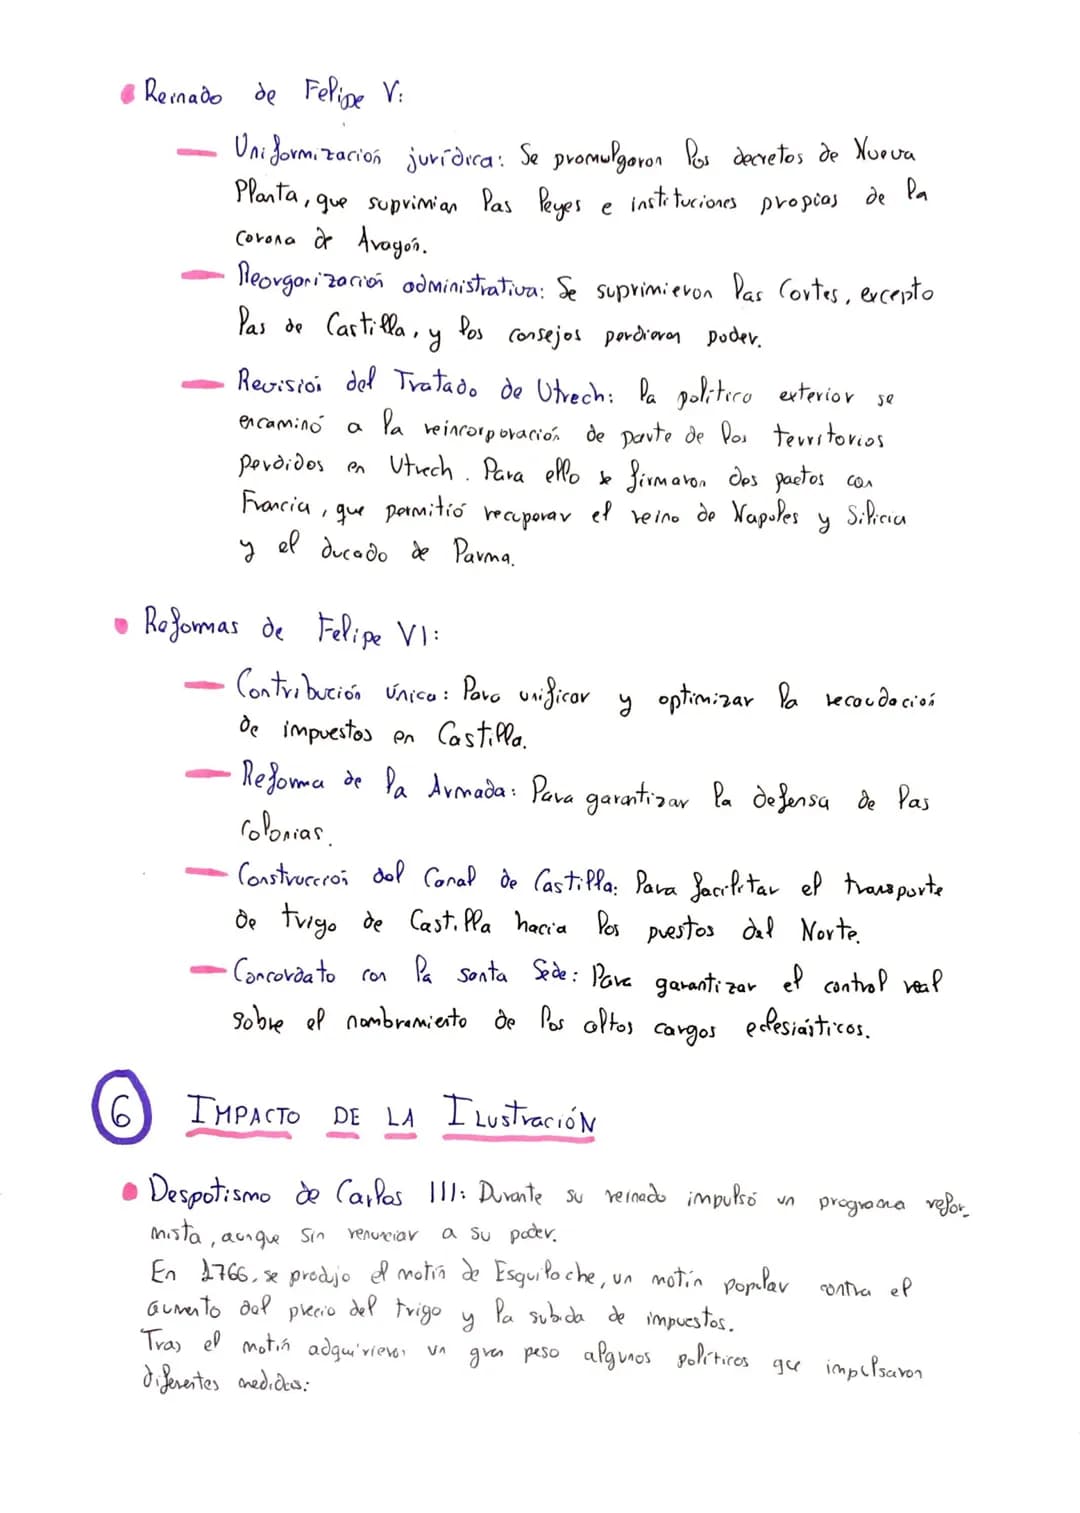 Reinado de Felipe V:
Uniformización jurídica: Se promulgaron los decretos de Nueva
Planta, que suprimian las leyes e instituciones propias de la
Corona de Aragón.
Reorganización administrativa: Se suprimieron las Cortes, excepto
las de Castilla, y los consejos perdieron poder.
Revisión del Tratado de Utrech: la política exterior se
encaminó a la reincorporación de parte de los territorios
perdidos en Utrech. Para ello se firmaron dos pactos con
Francia, que permitió recuperar el reino de Napoles y Silicia
y el ducado de Parma.
Reformas de Felipe VI:
Contribución única: Para unificar y optimizar la recaudación
de impuestos en Castilla.
Reforma de la Armada: Para garantizar la defensa de las
colonias.
Construcción del Canal de Castilla: Para facilitar el transporte
de trigo de Castilla hacia los puestos del Norte.
Concordato con la santa Sede: Para garantizar el control real
sobre el nombramiento de los altos cargos eclesiásticos.
6 IMPACTO DE LA ILustración
Despotismo de Carlos III: Durante su reinado impulsó un programa refor_
mista, aunque sin renunciar a su poder.
En 1766, se produjo el motín de Esquilache, un motín popular contra el
aumento del precio del trigo y la subida de impuestos.
Tras el motín adquirieron un gran peso algunos políticos que impulsaron
diferentes medidas: